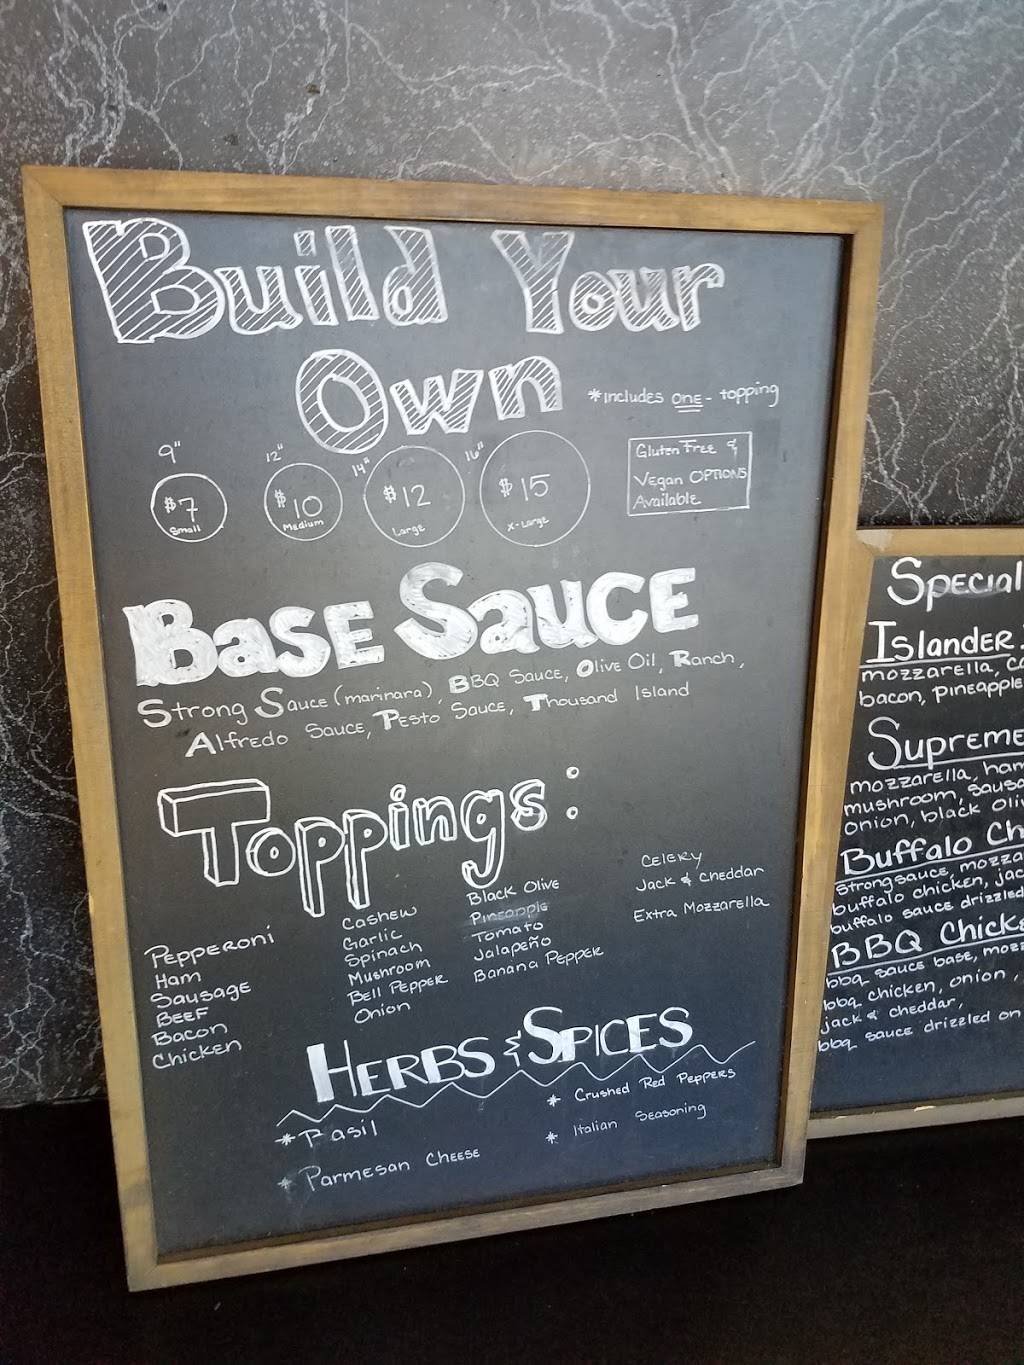 Build Your
Own
*includes ONE - topping
9"
$7
Small
12"
$10
Medium
14"
$12
Large
16"
$15
X-Large
Gluten Free &
Vegan OPTIONS
Available
BASE SAUCE
Strong Sauce (marinara), BBQ Sauce, Olive Oil, Ranch,
Alfredo Sauce, Pesto Sauce, Thousand Island
Toppings:
Pepperoni
Ham
Sausage
Beef
Bacon
Chicken
Cashew
Garlic
Spinach
Mushroom
Bell Pepper
Onion
Black Olive
Pineapple
Tomato
Jalapeño
Banana Pepper
Celery
Jack & Cheddar
Extra Mozzarella
HERBS & SPICES
* Basil
* Parmesan Cheese
* Crushed Red Peppers
* Italian Seasoning
Special
Islander
mozzarella,
bacon, pineapple
Supreme
mozzarella, ham
mushroom,
onion, black
Buffalo
strong sauce,
buffalo chicken,
buffalo sauce drizzled
BBQ
bbq sauce base,
bbq chicken, onion,
jack & cheddar,
bbq sauce drizzled on